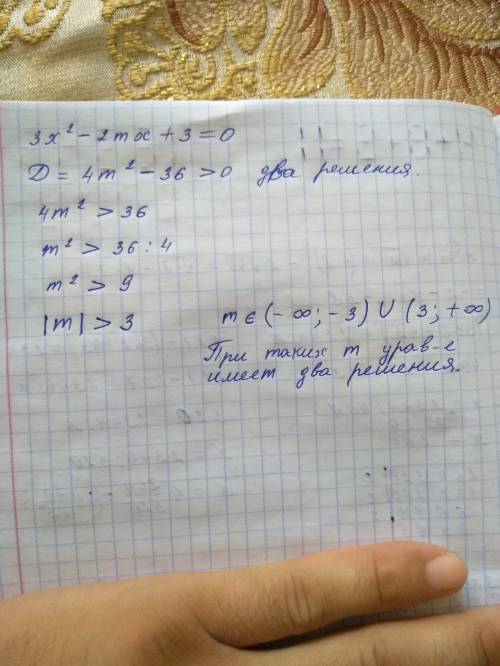 3x² - 2mx + 3 = 0
D = 4m² - 36 > 0 два решения.
4m² > 36
m² > 36 : 4
m² > 9
|m| > 3 m ∈ (- ∞; - 3) ∪ (3; + ∞)
При таких m урав-е
имеет два решения.